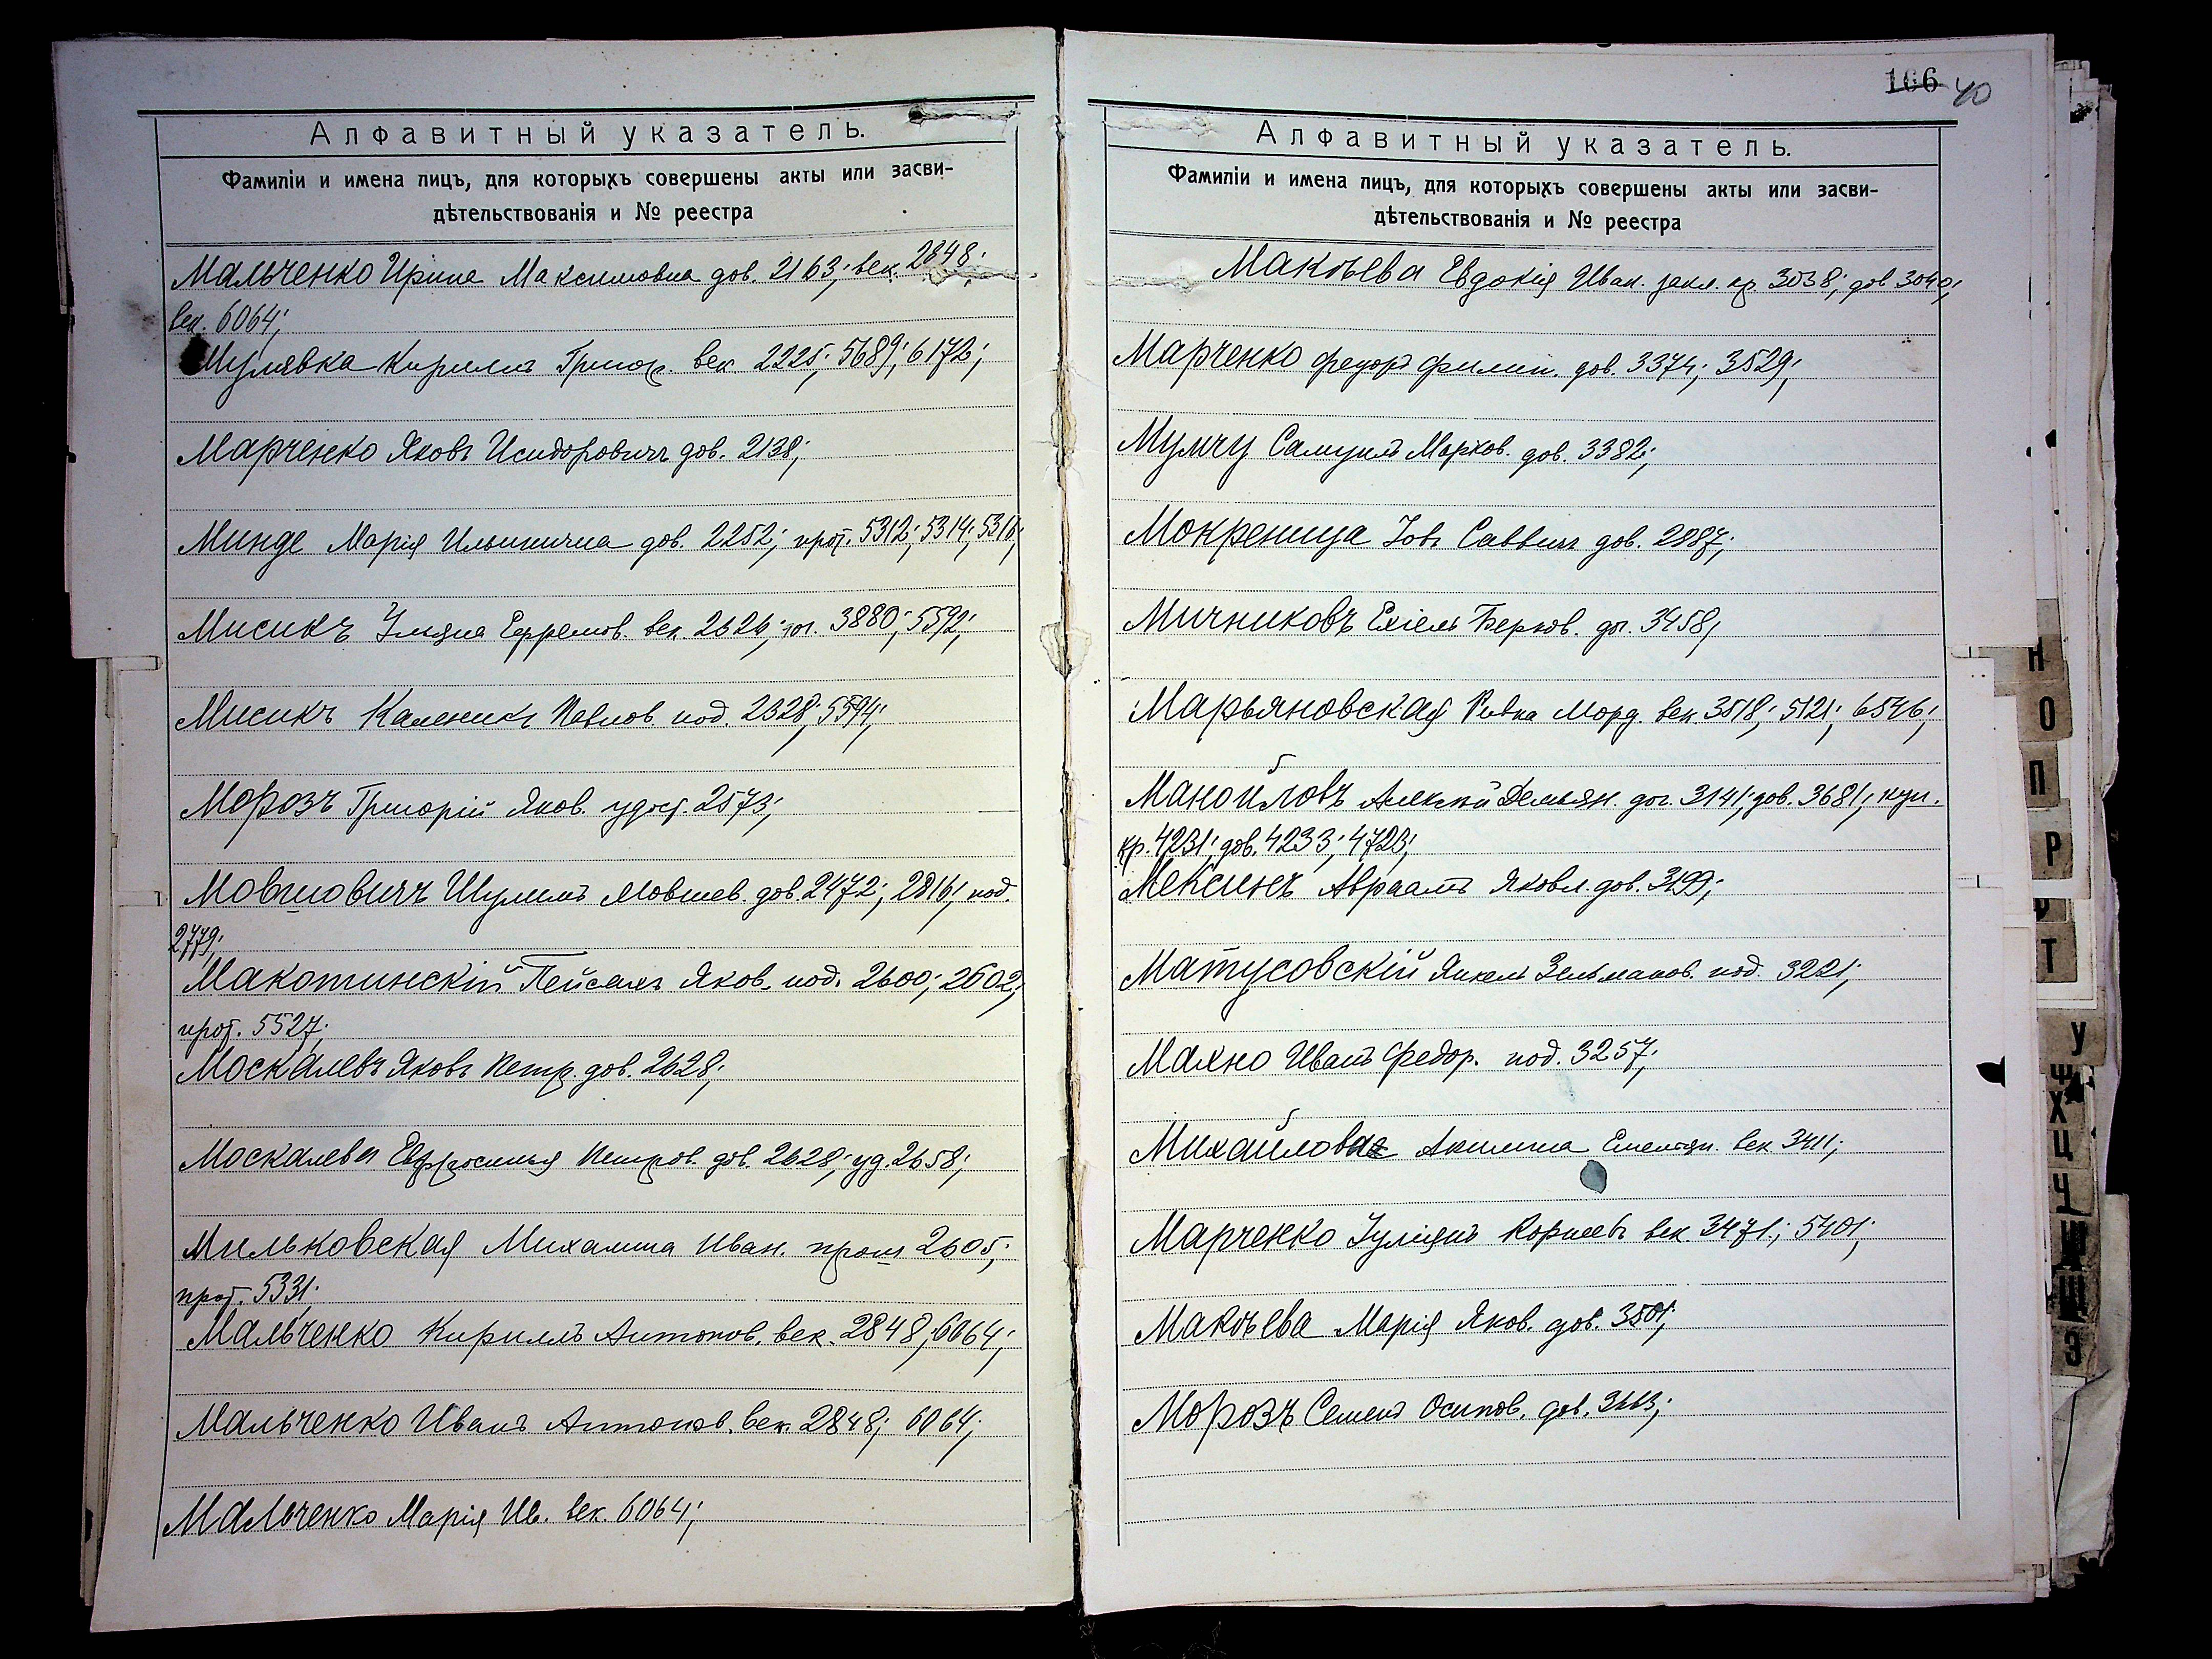 Алфавитный указатель.
Фамиліи и имена лицъ, для которыхъ совершены акты или засви-
дѣтельствованія и № реестра
Мальченко Ирине Максимовна дов. 2163; век. 2848;
век. 6064;
Мулявка Кириллъ Григор. век 2225; 5689; 6172;
Марченко Яковъ Исидоровичъ дов. 2138;
Минде Марія Ильинична дов. 2252; прот. 5312; 5314; 5316;
Мисикъ Ульяна Ефремов. век 2626; дог. 3880; 5592;
Мисикъ Каленикъ Павлов. под. 2328; 5594;
Морозъ Григорій Яков. удост. 2573;
Мовшовичъ Шулимъ Мовшев. дов. 2472; 2816; под.
2779;
Макотинскій Пейсахъ Яков. под. 2600; 2602;
прот. 5527;
Москалевъ Яковъ Петр. дов. 2628;
Москалева Евфросинья Петров. дов. 2628; уд. 2658;
Мильковская Михалина Иван. прот 2605;
прот. 5331;
Мальченко Кириллъ Антонов. век. 2848; 6064;
Мальченко Иванъ Антонов. век. 2848; 6064;
Мальченко Марія Ив. век. 6064;
106 40
Алфавитный указатель.
Фамиліи и имена лицъ, для которыхъ совершены акты или засви-
дѣтельствованія и № реестра
Макѣева Евдокія Иван. закл. кр. 3038; дов 3040;
Марченко Федоръ Филип. дов. 3374; 3529;
Мумчу Самуилъ Марков. дов. 3382;
Мокреница Іовъ Саввичъ дов. 2987;
Мичниковъ Ехіель Берков. дог. 3458;
Марьяновская Ривка Морд. век. 3518; 5121; 6546;
Манойловъ Алексѣй Демьян. дог. 3141; дов. 3681; куп.
кр. 4231; дов. 4233; 4723;
Мексинъ Авраамъ Яковл. дов. 3199;
Матусовскій Янкель Зельманов. под. 3221;
Махно Иванъ Федор. под. 3257;
Михайлова Акилина Емельян. век 3411;
Марченко Іуліянъ Корнеев век 3471; 5401;
Макѣева Марія Яков. дов. 3501;
Морозъ Семенъ Осипов. дов. 3663;
Н
О
П
Р
Т
У
Ф
Х
Ц
Ч
Ш
Щ
Э